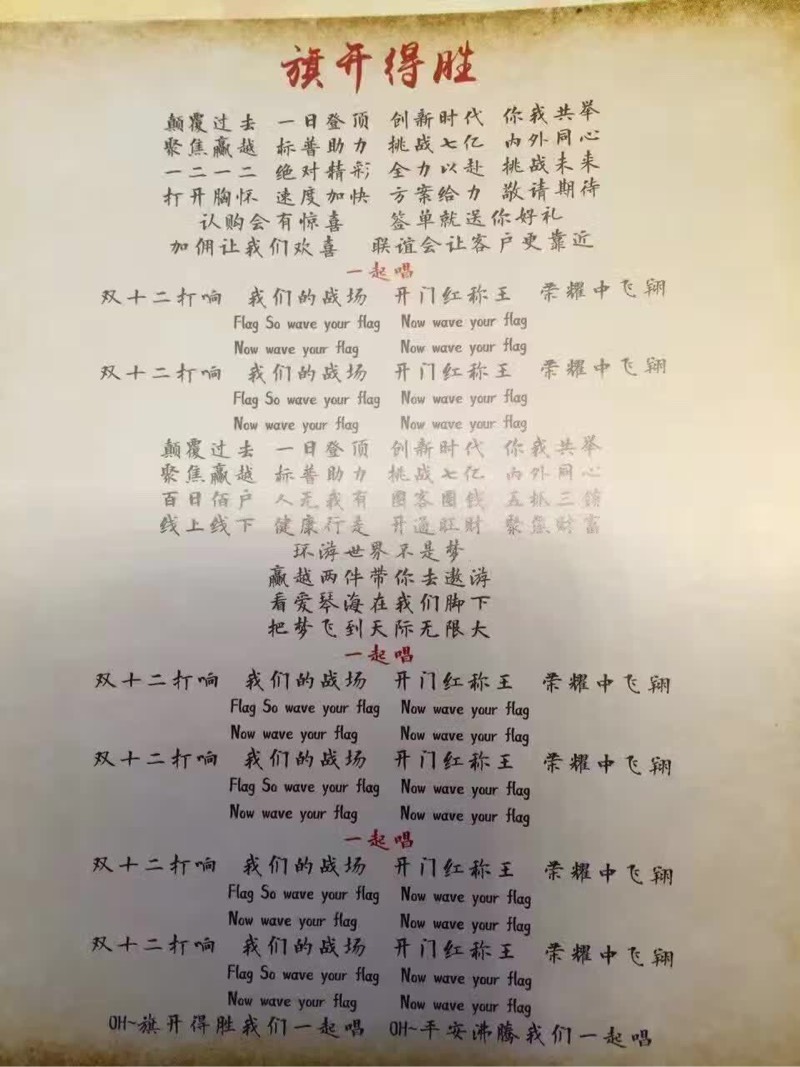 旗开得胜
颠覆过去 一日登顶 创新时代 你我共举
聚焦赢越 标普助力 挑战七亿 内外同心
一二一二 绝对精彩 全力以赴 挑战未来
打开胸怀 速度加快 方案给力 敬请期待
认购会有惊喜 签单就送你好礼
加佣让我们欢喜 联谊会让客户更靠近
一起唱
双十二打响 我们的战场 开门红称王 荣耀中飞翔
Flag So wave your flag Now wave your flag
Now wave your flag Now wave your flag
双十二打响 我们的战场 开门红称王 荣耀中飞翔
Flag So wave your flag Now wave your flag
Now wave your flag Now wave your flag
颠覆过去 一日登顶 创新时代 你我共举
聚焦赢越 标普助力 挑战七亿 内外同心
百日佰户 人无我有 圈客圈钱 五抓三领
线上线下 健康行走 开通旺财 聚您财富
环游世界不是梦
赢越两件带你去遨游
看爱琴海在我们脚下
把梦飞到天际无限大
一起唱
双十二打响 我们的战场 开门红称王 荣耀中飞翔
Flag So wave your flag Now wave your flag
Now wave your flag Now wave your flag
双十二打响 我们的战场 开门红称王 荣耀中飞翔
Flag So wave your flag Now wave your flag
Now wave your flag Now wave your flag
一起唱
双十二打响 我们的战场 开门红称王 荣耀中飞翔
Flag So wave your flag Now wave your flag
Now wave your flag Now wave your flag
双十二打响 我们的战场 开门红称王 荣耀中飞翔
Flag So wave your flag Now wave your flag
Now wave your flag Now wave your flag
OH~旗开得胜我们一起唱 OH~平安沸腾我们一起唱